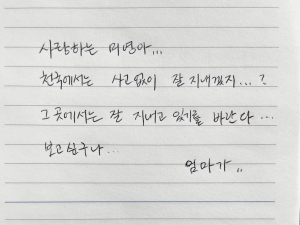 사랑하는 미연아...
천국에서는 사고없이 잘 지내겠지...?
그 곳에서는 잘 지내고 있기를 바란다...
보고싶구나...
엄마가..